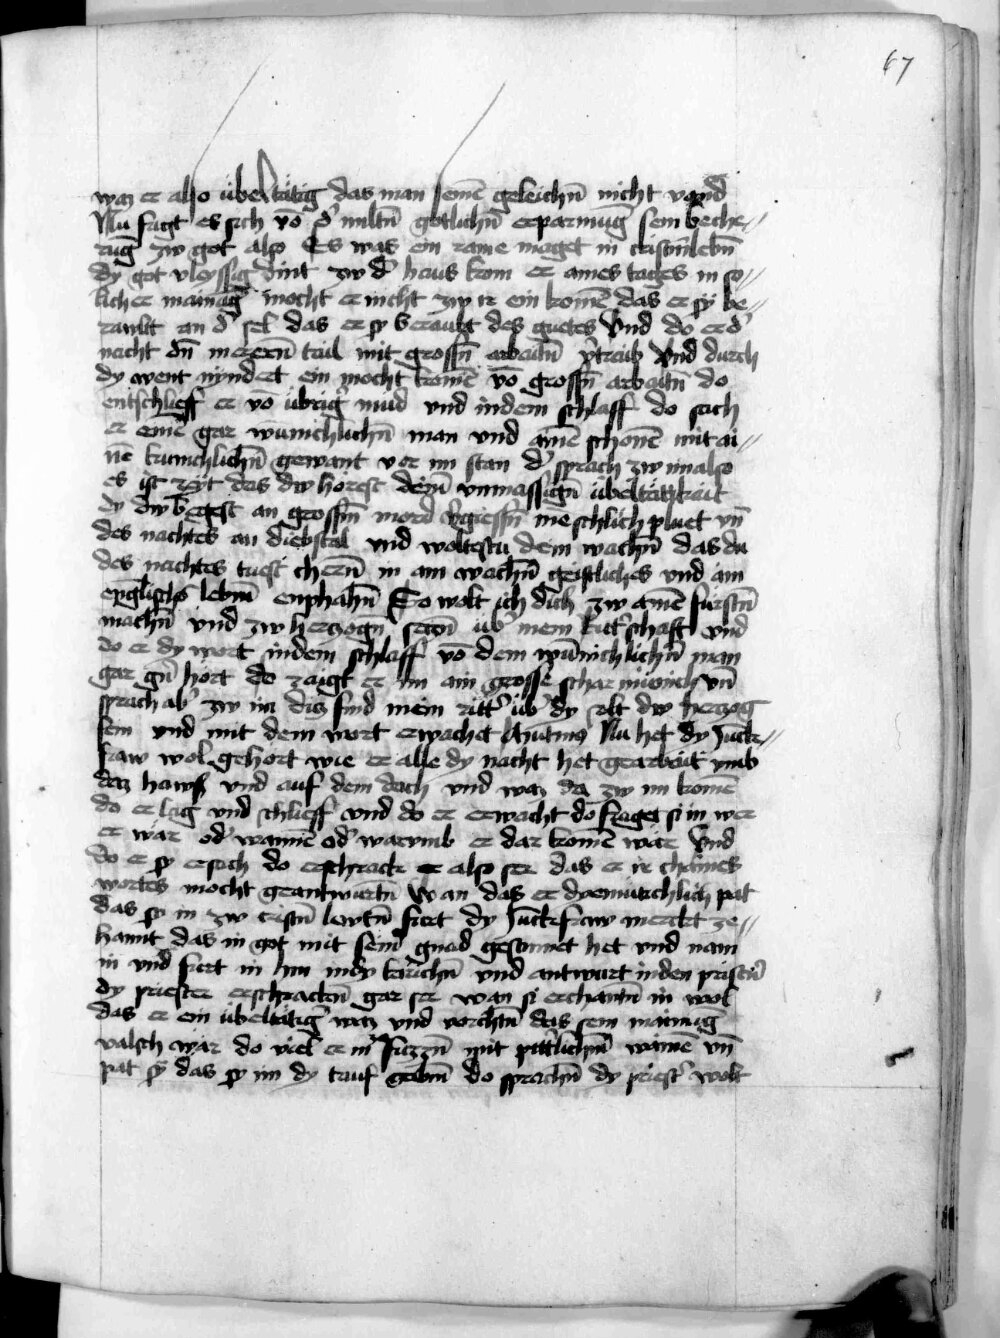 67
waz er also übeltätig das man seinē geleichn̄ nicht vand
Nu fügt es sich vō d' miltn̄ götlichn̄ erparmūg sein beche⸗
rūg zw got also Es was ein raine maget in cristmlebn̄
dy got vleyssig dint zw d' haus kom er aines tages in so⸗
licher mainūg mocht er nicht zw ir ein komē das er sy be⸗
rawbt an d' sel das er sy beraubt des guetes Vnd do er d'
nacht dn̄ merern̄ tail mit grossn̄ arbaitn̄ v'traib Vnd durch
dy went nyndert ein mocht komē vō grossn̄ arbaitn̄ do
entschlieff er vō übrig' müd vnd indem schlaff do sach
er einē gar wūnichlichn̄ man vnd ainē schonē mit ai⸗
nē kunichlichn̄ gewant vor im stan d' sprach zw im also
es ist zeyt das dw hörest dein̄ vnmassign̄ übeltättikait
dy dw begest an grossm̄ mord v'giessn̄ mēschlich pluet vn̄
des nachtes an diebstal vnd woltestu dein wachn̄ das du
des nachtes tuest chern̄ in ain wachn̄ geistliches vnd ain
englischs lebm̄ enphahn̄ So wolt ich dich zw ainē fürstn̄
machn̄ vnd zw herczogn̄ seczn̄ üb' mein ritt'schaft vnd
do er dy wort indem schlaff vō dem wūnichlichn̄ man
gar gn̄ hört do zaigt er im ain grosse schar münich vn̄
sprach ab' zw im dis sind mein ritt' üb' dy solt dw herczog
sein vnd mit dem wort erwachet Mutius Nu het dy Junck⸗
fraw wol gehort wie er alle dy nacht het gearbait vmb
daz haws vnd auf dem dach vnd waz da zw im komē
do er lag vnd schlieff vnd do er erwacht do fraget si in wer
er war od' wannē od' warumb er dar komē wäre Vnd
do er sy ersach do erschrack er also ser das er ir chaines
wortes mocht geantwürtn̄ Wan das er dyemutichlich pat
das sy in zw cristn̄ lewtn̄ fürt dy Junckfraw merckt ze⸗
hannt das in got mit sein̄ gnad gesamnet het vnd nam
in vnd fürt in hin indy kirichn̄ vnd antwurt inden pristn̄
dy priester erschrackn̄ gar ser wan si erchantn̄ in wol
das er ein übeltätig' waz vnd vorchtn̄ das sein mainūg
valsch wär do viel er in' füzzn̄ mit pittlichm̄ wainē vn̄
pat sy das sy im dy tauf gebm̄ do sprachn̄ dy priest' wolt